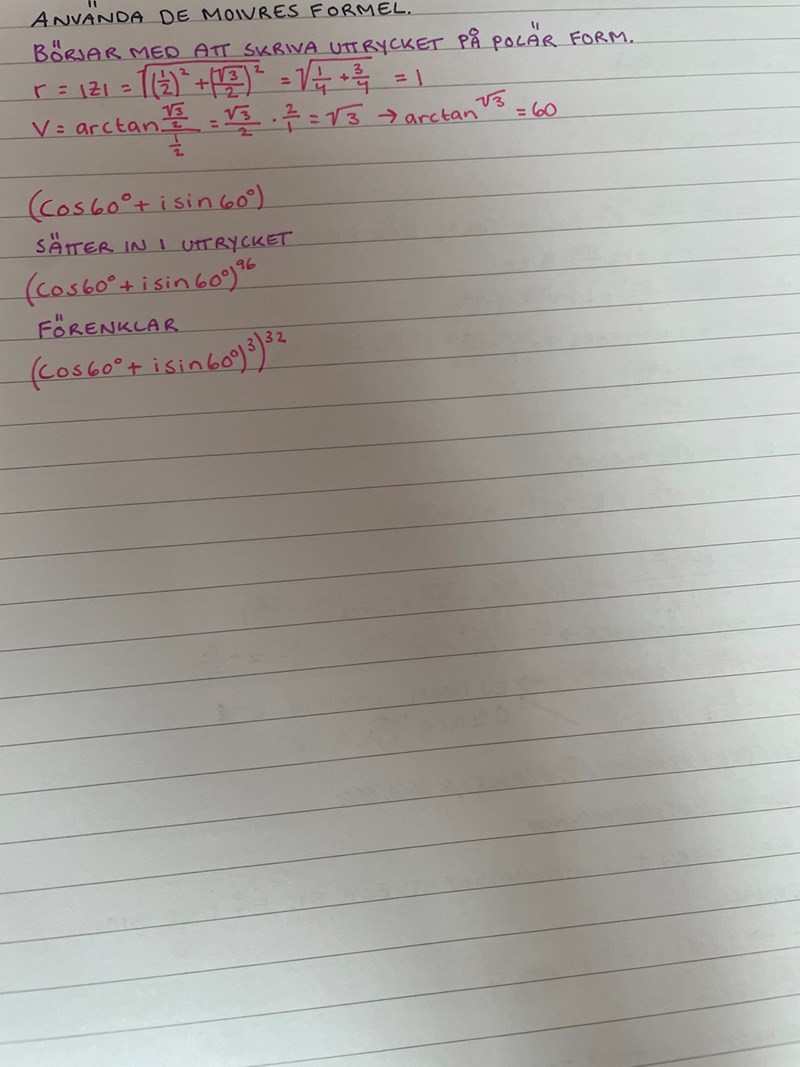 ANVÄNDA DE MOIVRES FORMEL.
BÖRJAR MED ATT SKRIVA UTTRYCKET PÅ POLÄR FORM.
r = |z| = √((1/2)² + (√3/2)²) = √(1/4 + 3/4) = 1
V = arctan (√3/2)/(1/2) = √3/2 · 2/1 = √3 → arctan √3 = 60
(cos60° + i sin 60°)
SÄTTER IN I UTTRYCKET
(cos60° + i sin 60°)^96
FÖRENKLAR
(cos60° + i sin 60°)^3)^32